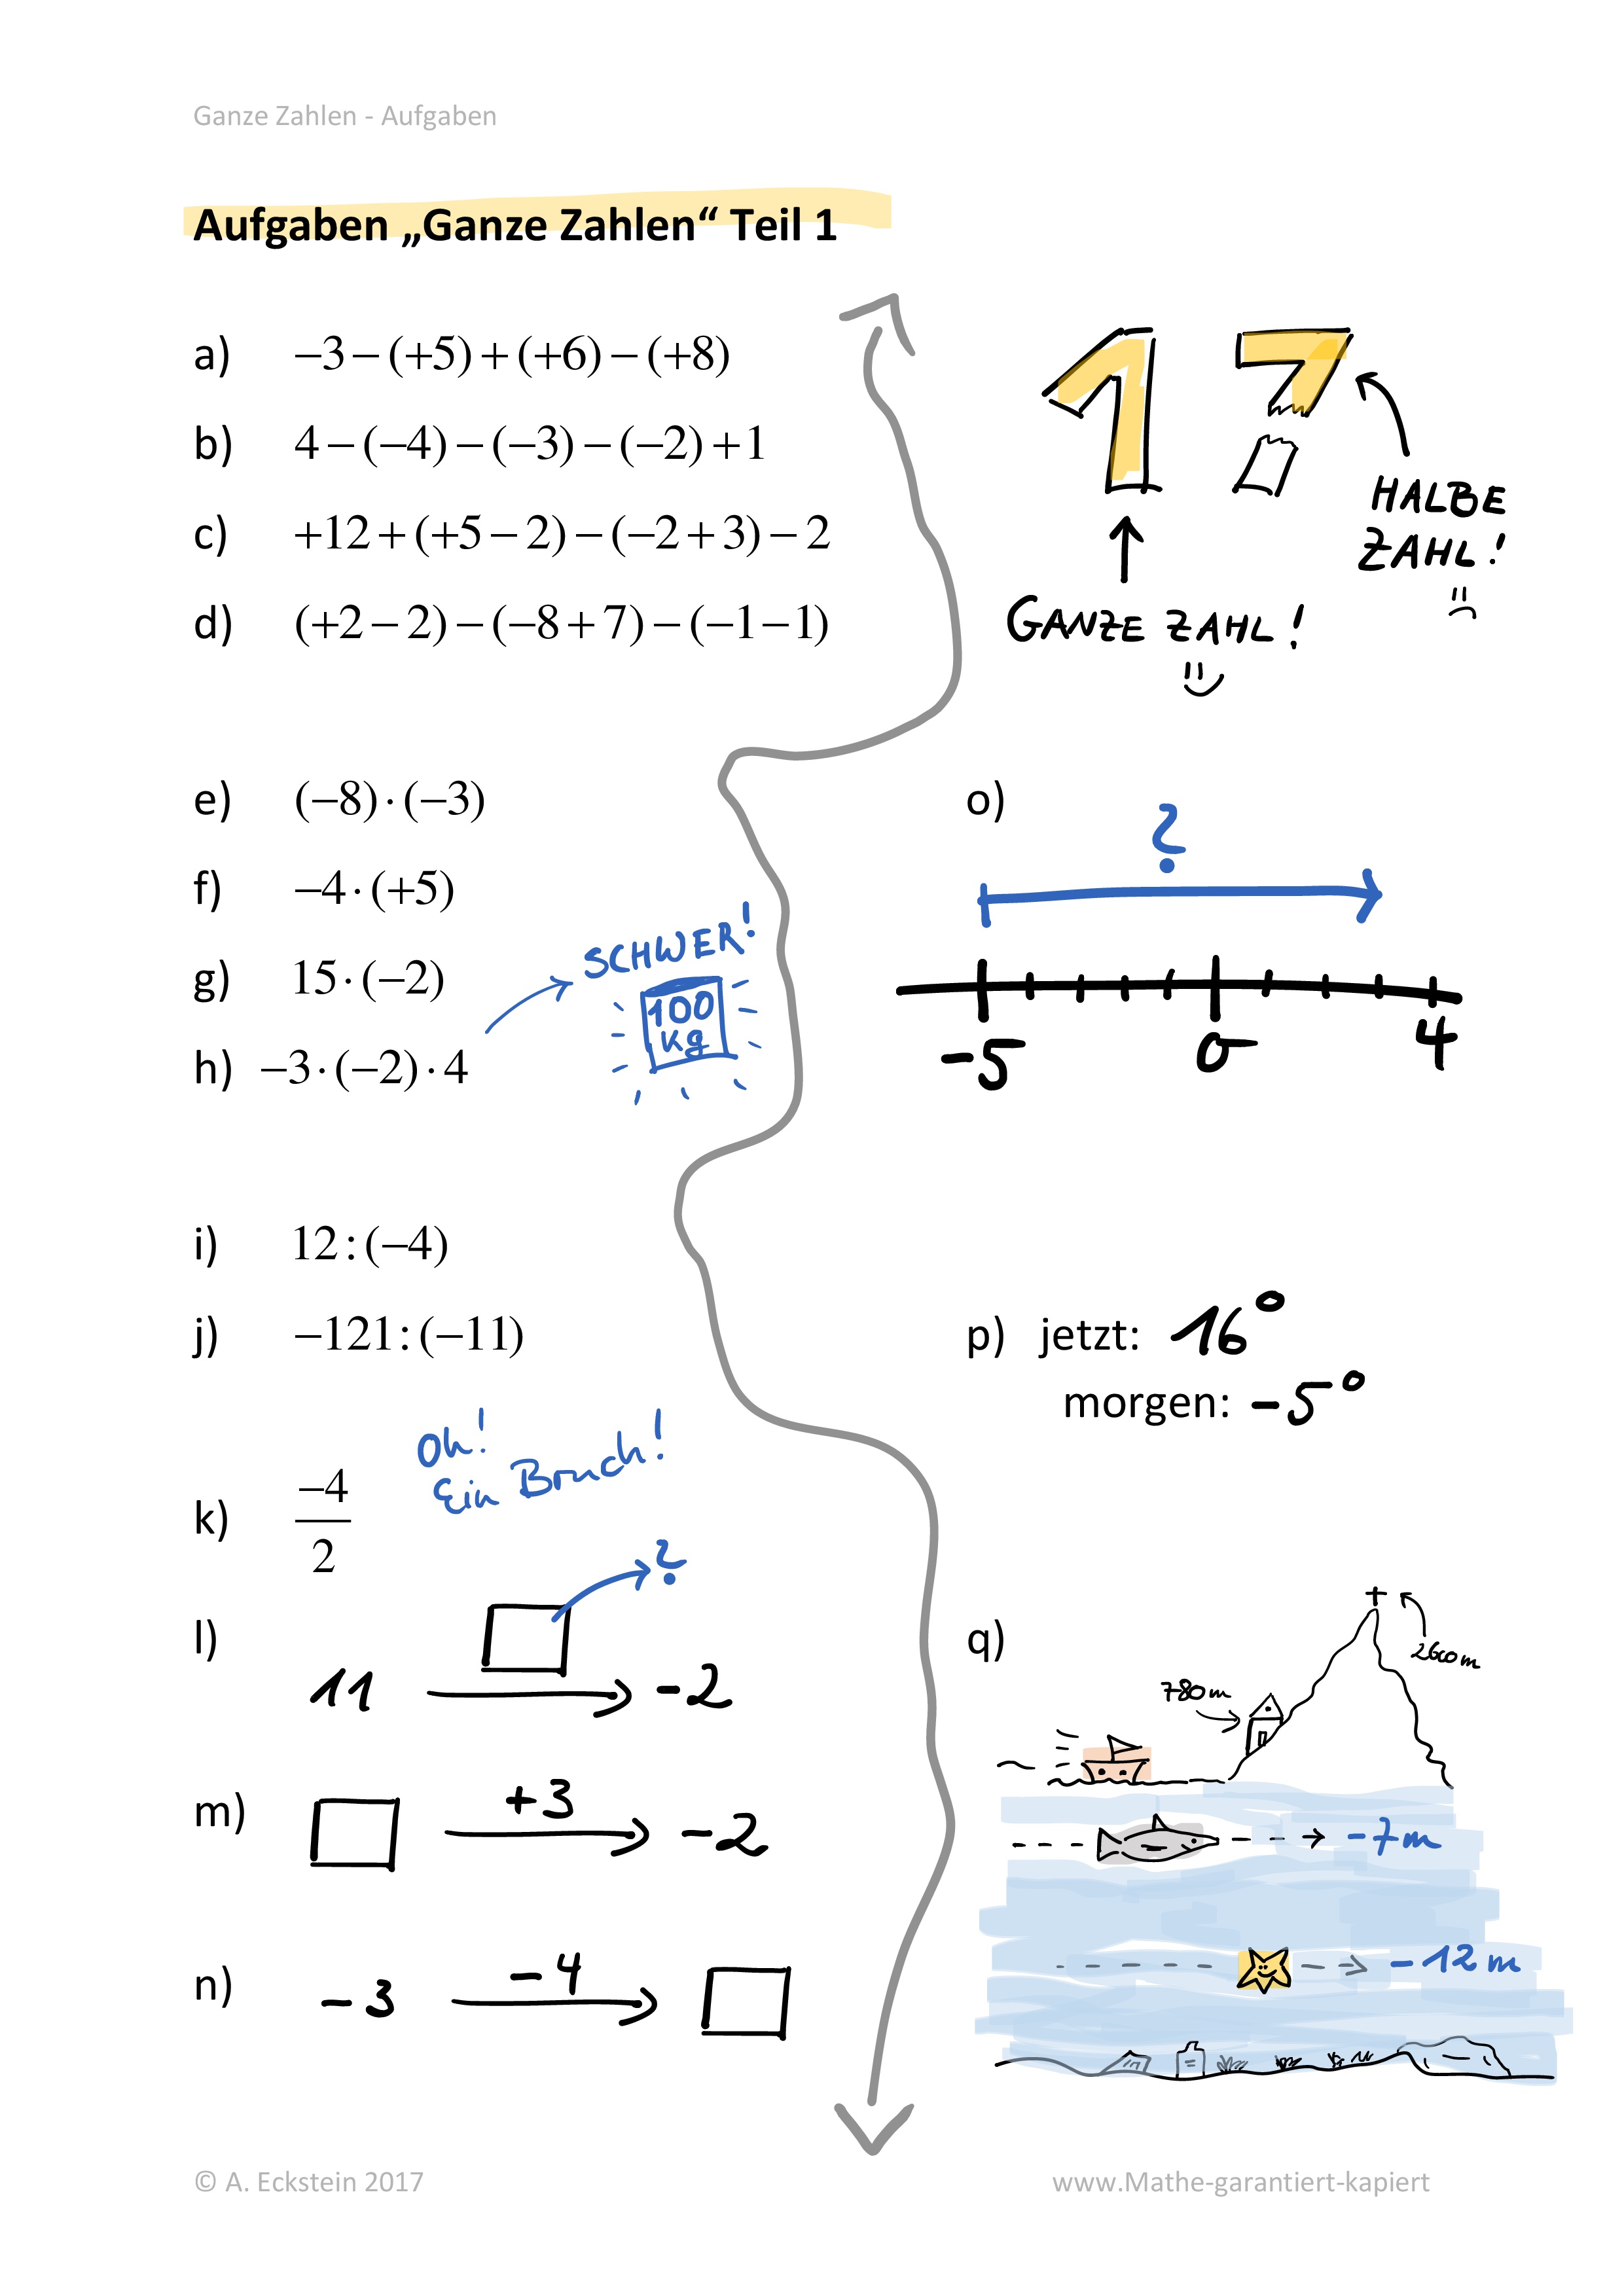 Ganze Zahlen - Aufgaben
Aufgaben „Ganze Zahlen“ Teil 1
a) −3−(+5)+(+6)−(+8)
b) 4−(−4)−(−3)−(−2)+1
c) +12+(+5−2)−(−2+3)−2
d) (+2−2)−(−8+7)−(−1−1)
1 7
HALBE
ZAHL!
GANZE ZAHL!
e) (−8)·(−3)
f) −4·(+5)
g) 15·(−2)
SCHWER!
100
kg
h) −3·(−2)·4
o)
?
-5 0 4
i) 12:(−4)
j) −121:(−11)
p) jetzt: 16°
morgen: -5°
Oh!
Ein Bruch!
k) −4
2
l)
?
11 -2
m) +3
-2
n) -4
-3
q)
2600m
780m
-7m
-12m
© A. Eckstein 2017
www.Mathe-garantiert-kapiert